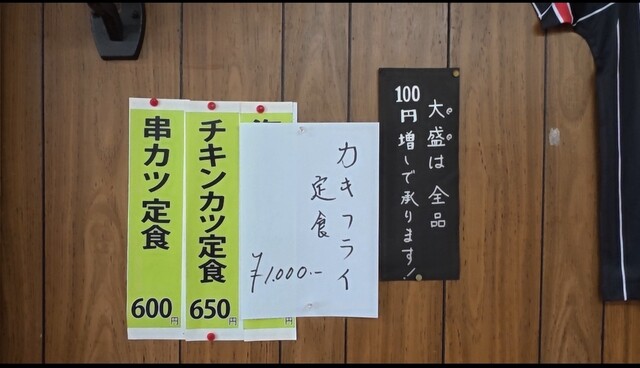 大盛は全品
100円増しで承ります!
カキフライ
定食
¥1,000.-
チキンカツ定食
650円
串カツ定食
600円